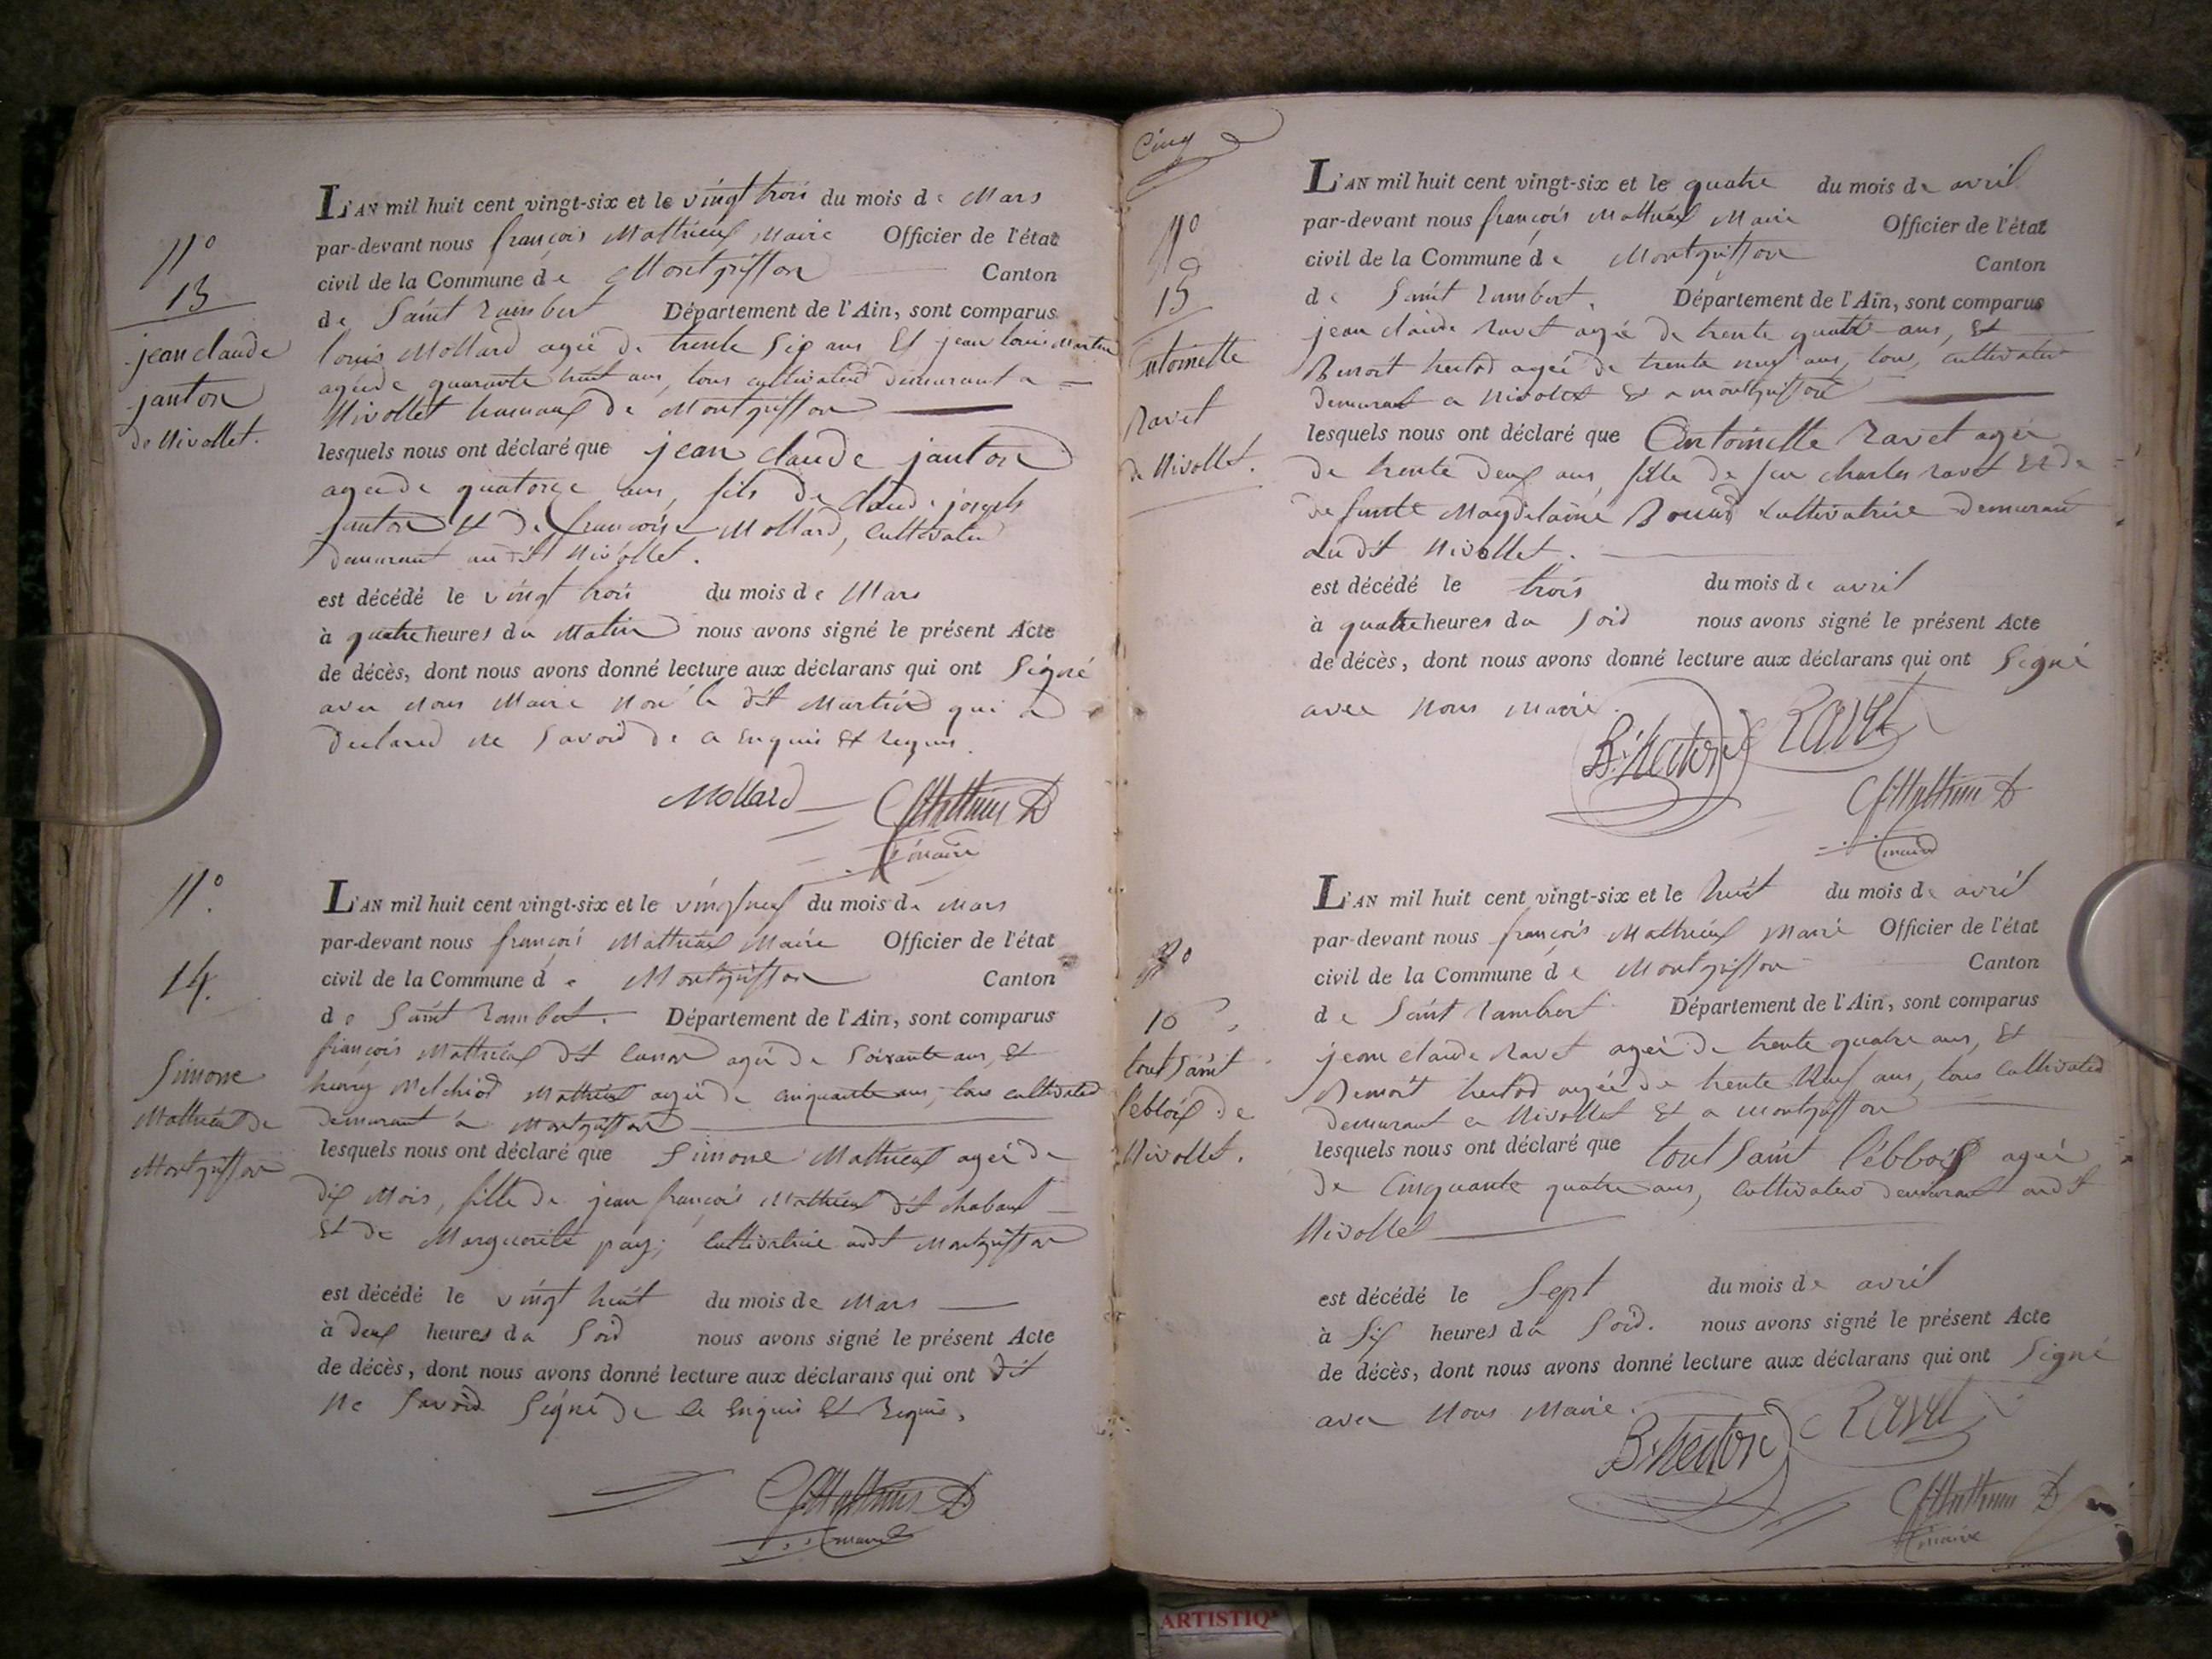 N°
13
jean claude
janton
de Nivollet.
L'AN mil huit cent vingt-six et le vingt trois du mois de Mars
par-devant nous françois Mathieux Maire Officier de l'état
civil de la Commune de Montgriffon Canton
de Saint rambert Département de l'Ain, sont comparus
louis Mollard agée de trente Six ans Et jean louis Martin
agée de quarante huit ans, tous cultivateur demeurant a
Nivollet hameaux de Montgriffon
lesquels nous ont déclaré que jean claude janton
agée de quatorze ans, fils de claude joseph
janton Et de françoise Mollard, Cultivateur
demeurant au dit Nivollet.
est décédé le vingt trois du mois de Mars
à quatre heures du Matin nous avons signé le présent Acte
de décès, dont nous avons donné lecture aux déclarans qui ont Signé
avec Nous Maire Non le dit Martin qui a
declaré ne Savoir de a Enquis Et requis.
Mollard
maire
N°.
14.
Simone
Mathieux de
Montgriffon
L'AN mil huit cent vingt-six et le vingt neuf du mois de Mars
par-devant nous françois Mathieux Maire Officier de l'état
civil de la Commune de Montgriffon Canton
de Saint rambert. Département de l'Ain, sont comparus
françois Mathieux dit agée de Soixante ans, Et
henry Melchior Mathieux agée de cinquante ans, tous cultivateur
demeurant a Montgriffon
lesquels nous ont déclaré que Simone Mathieux agée de
dix Mois, fille de jean françois Mathieux dit chabaux
Et de Marguerite pay, Cultivatrice audt Montgriffon
est décédé le vingt huit du mois de Mars
à deux heures du Soir nous avons signé le présent Acte
de décès, dont nous avons donné lecture aux déclarans qui ont dit
Ne Savoir Signé de Ce Enquis Et Requis.
maire
Cinq
N°
15
Antoinette
Ravet
de Nivollet.
L'AN mil huit cent vingt-six et le quatre du mois de avril
par-devant nous françois Mathieux Maire Officier de l'état
civil de la Commune de Montgriffon Canton
de Saint rambert. Département de l'Ain, sont comparus
jean claude Ravet agée de trente quatre ans, Et
Benoit hector agée de trente neuf ans, tous, cultivateur
demeurant a Nivolet Et a montgriffon
lesquels nous ont déclaré que Antoinette Ravet agée
de trente deux ans, fille de feu charles ravet Et de
defunte Magdelaine Cultivatrice demeurant
audit Nivollet.
est décédé le trois du mois de avril
à quatre heures du Soir nous avons signé le présent Acte
de décès, dont nous avons donné lecture aux déclarans qui ont Signé
avec Nous Maire.
B. hector Ravet
maire
N°
16
tout Saint
lebloix de
Nivollet.
L'AN mil huit cent vingt-six et le huit du mois de avril
par-devant nous françois Mathieux Maire Officier de l'état
civil de la Commune de Montgriffon Canton
de Saint rambert Département de l'Ain, sont comparus
jean claude Ravet agée de trente quatre ans, Et
Benoit hector agée de trente Neuf ans, tous Cultivateur
demeurant a Nivollet Et a montgriffon
lesquels nous ont déclaré que tout Saint lebloix agée
de Cinquante quatre ans, Cultivateur demeurant audt
Nivollet
est décédé le Sept du mois de avril
à Six heures du Soir. nous avons signé le présent Acte
de décès, dont nous avons donné lecture aux déclarans qui ont Signé
avec Nous Maire.
B. hector Ravet
maire
ARTISTIQ